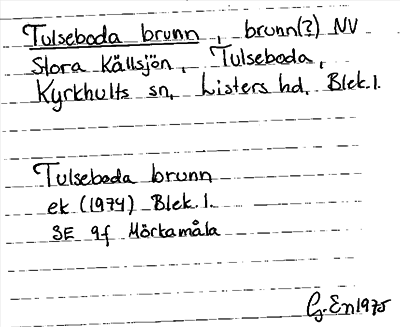 Tulseboda brunn, brunn(?) NV
Stora Källsjön, Tulseboda,
Kyrkhults sn, Listers hd, Blek.l.
Tulseboda brunn
ek (1974) Blek.l.
3E 9f Mörkamåla
G. En 1975